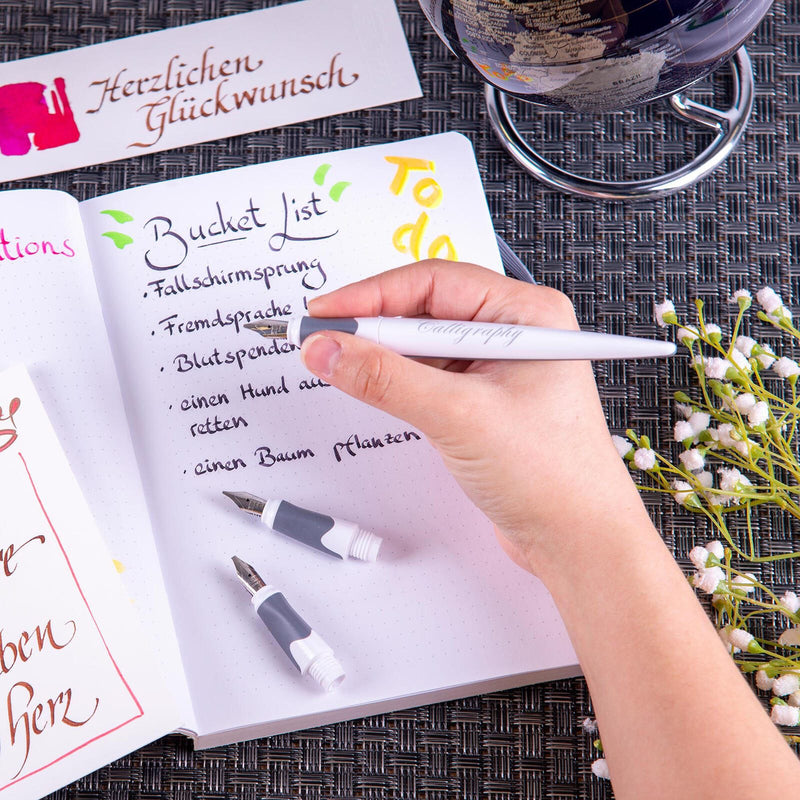 Herzlichen
Glückwunsch
Bucket List
To
do
· Fallschirmsprung
· Fremdsprache
· Blutspenden
· einen Hund
retten
· einen Baum pflanzen
Calligraphy
herz
BRAZIL